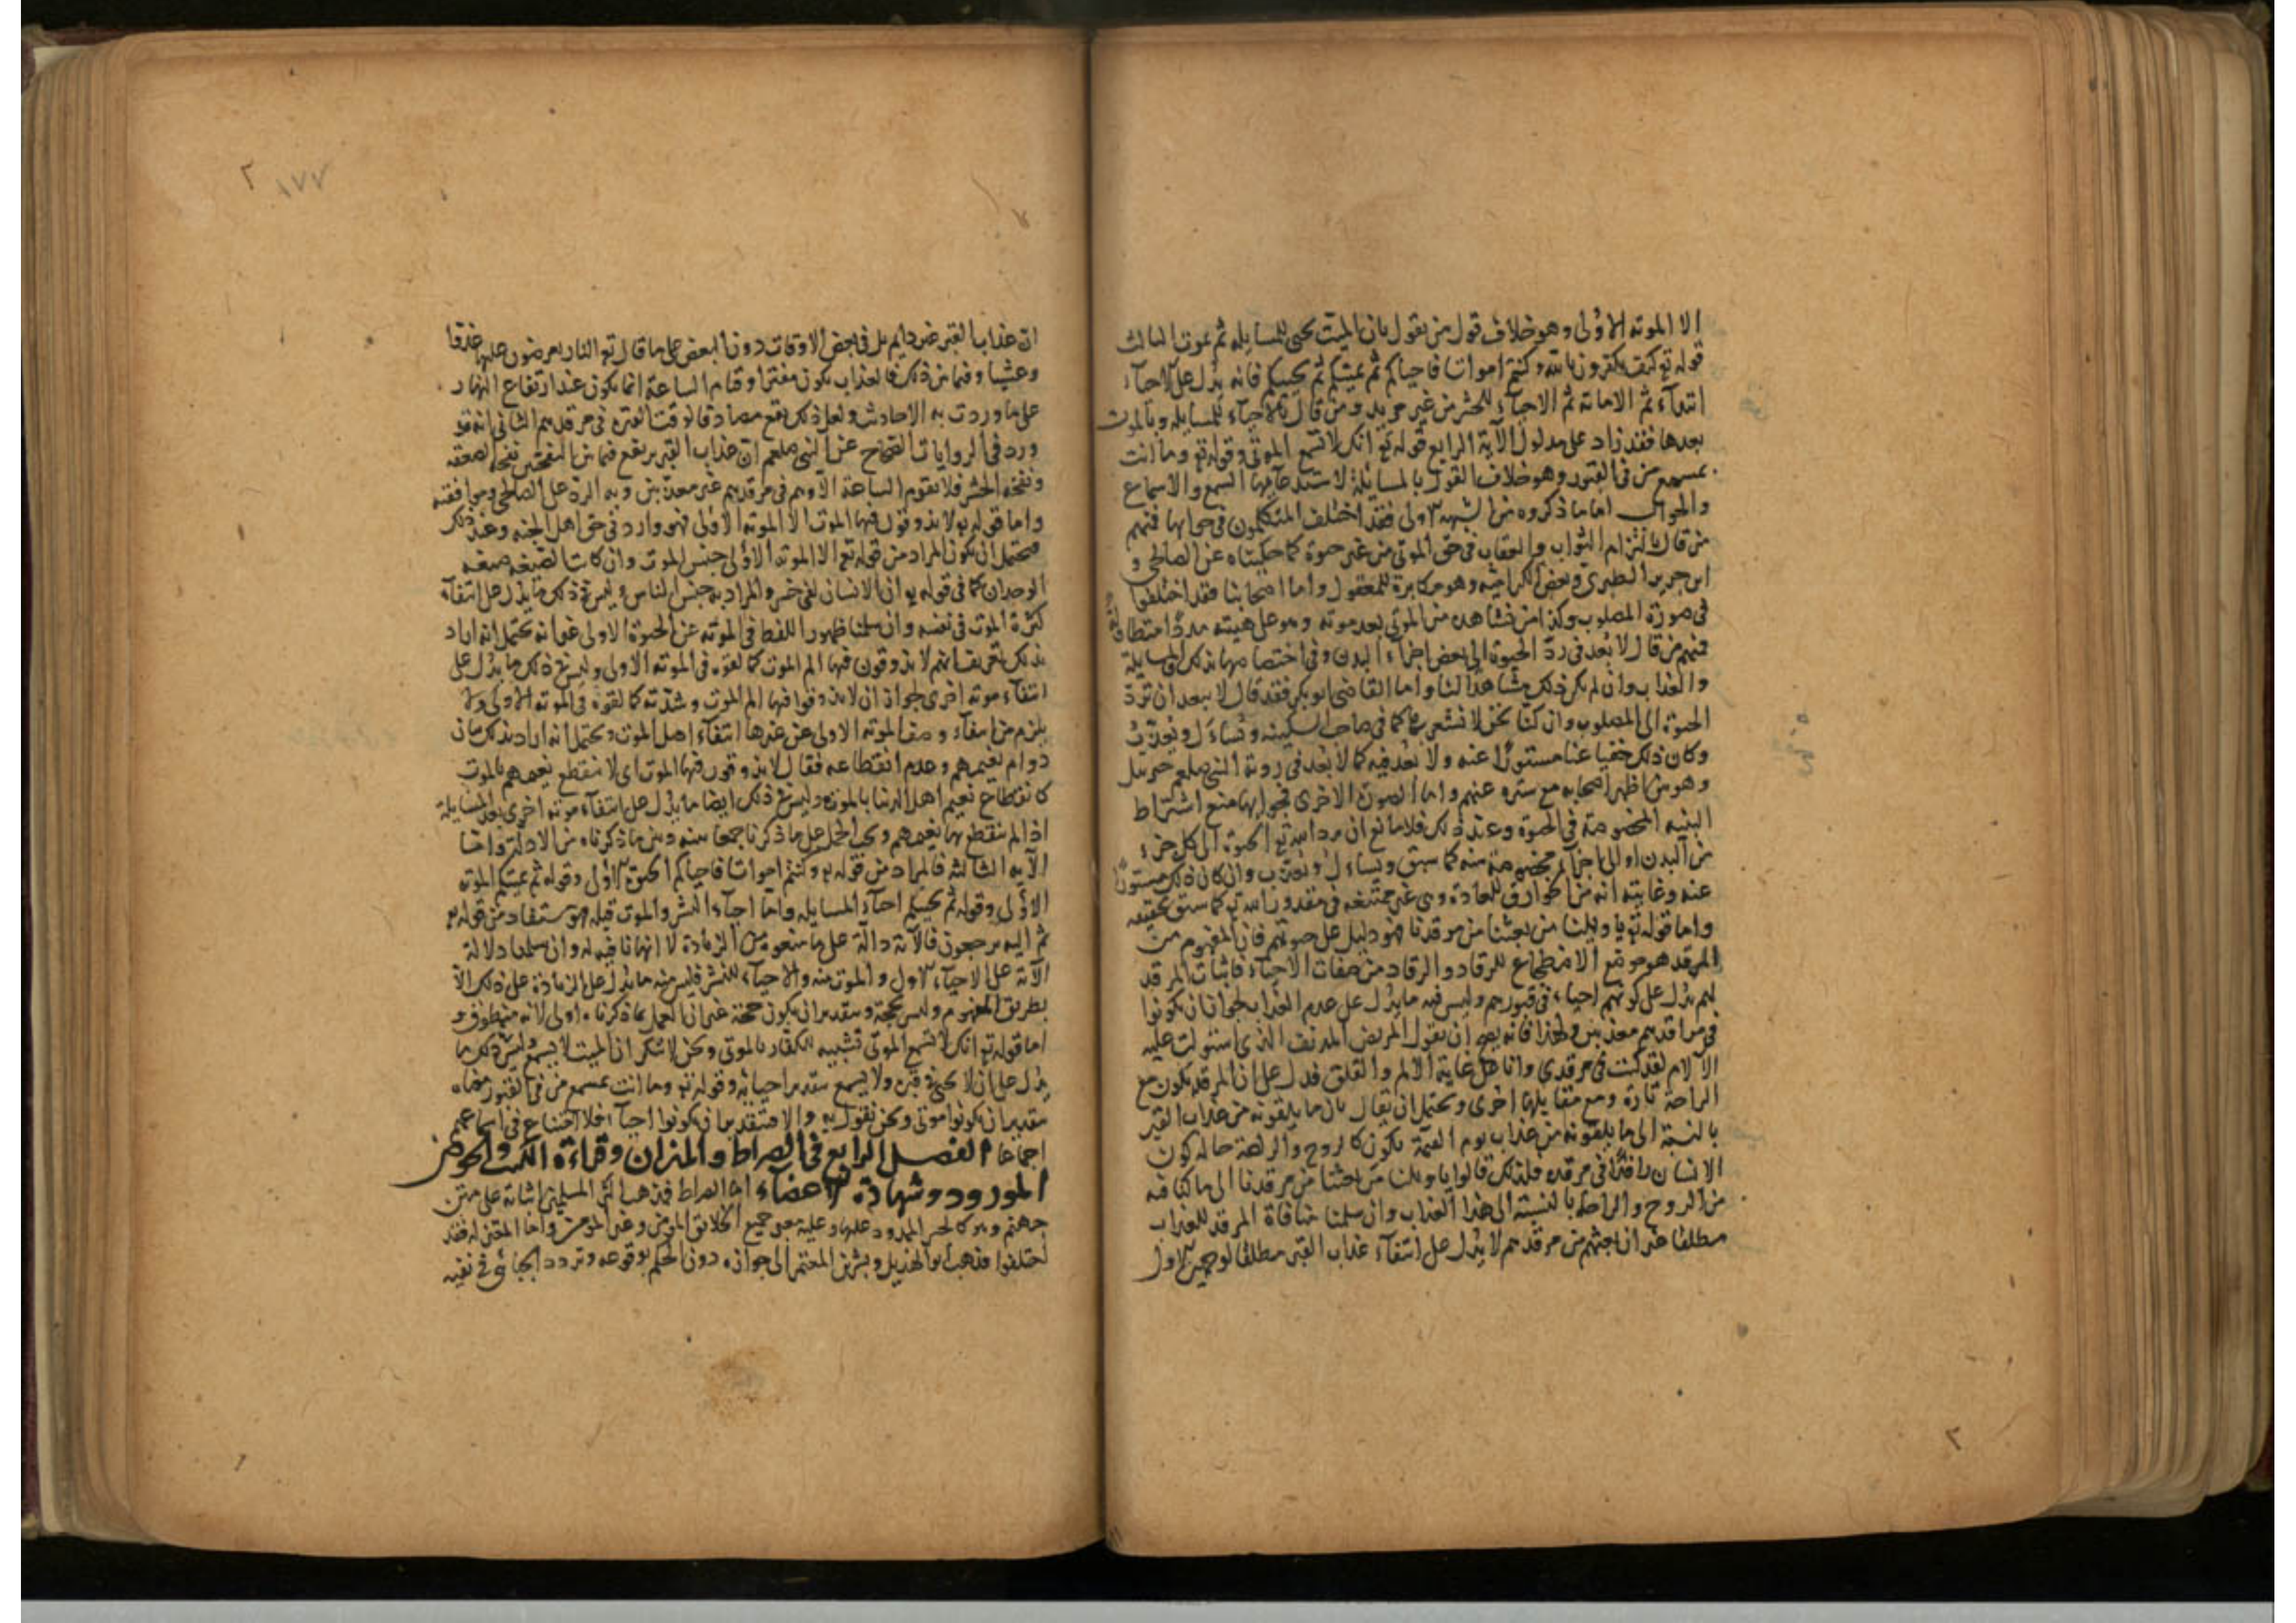 الا الموته الاولى وهو خلاف قول من يقول بان الميت يحيى للمسايله ثم يموت الثالث
قوله تع كيف تكفرون بالله وكنتم امواتا فاحياكم ثم يميتكم ثم يحييكم فانه يدل على الاحياء
ابتداء ثم الاماته ثم الاحياء للحشر من غير مزيد ومن قال بالاحياء للمسايله وبالموت
بعدها فقد زاد على مدلول الآية الرابع قوله تع انك لا تسمع الموتى وقوله تع وما انت
بمسمع من في القبور وهو خلاف القول بالمسائلة لاستدعائها السمع والاسماع
والجواب اما ما ذكروه من الشبهه الاولى فقد اختلف المتكلمون في جوابها فمنهم
من قال بالتزام الثواب والعقاب في حق الموتى من غير حيوة كما حكيناه عن الصالحي و
ابن جرير الطبري وبعض الكراميه وهو مكابرة للمعقول واما اصحابنا فقد اختلفوا
في صورة المصلوب وكذا من نشاهده من الموتى بعد موته وهو على هيئته مددا متطاولة
فمنهم من قال لا بعد في رد الحيوة الى بعض اجزاء البدن وفي اختصاصها بذلك المسايلة
والعذاب وان لم يكن ذلك مشاهدا لنا واما القاضي ابو بكر فقد قال لا يبعد ان ترد
الحيوة الى المصلوب وان كنا نحن لا نشعر بها كما في صاحب السكينه ويساءل ويعذب
وكان ذلك خفيا عنا مستورا عنه ولا بعد فيه كما لا بعد في رويه النبي صلعم جبريل
وهو بين اظهر اصحابه مع ستره عنهم واما الصورة الاخرى فجوابها منع اشتراط
البنيه المخصوصة في الحيوة وعند ذلك فلا مانع ان يرد الله تع الحيوة الى كل جزء
من البدن او الى اجزاء مخصوصة منه كما سبق ويساءل ويعذب وان كان ذلك مستورا
عنه وغايته انه من الخوارق للعادة وهي غير ممتنعه في مقدور الله تع كما سبق تحقيقه
واما قوله تع يا ويلنا من بعثنا من مرقدنا فهو دليل على حيوتهم فان المفهوم من
المرقد هو موضع الاضطجاع للرقاد والرقاد من صفات الاحياء فاثبات المرقد
لهم يدل على كونهم احياء في قبورهم وليس فيه ما يدل على عدم العذاب لجواز ان يكونوا
في مراقدهم معذبين ولهذا فانه يصح ان يقول المريض المدنف الذي استولت عليه
الآلام لقد كنت في مرقدي وانا على غاية الالم والقلق فدل على ان المرقد يكون مع
الراحة تارة ومع مقابلها اخرى ويحتمل ان يقال بان ما يلقونه من عذاب القبر
بالنسبة الى ما يلقونه من عذاب يوم القيمة يكون كالروح والراحة حاله كون
الانسان راقدا في مرقده فلذلك قالوا يا ويلنا من بعثنا من مرقدنا الى ما كنا فيه
من الروح والراحة بالنسبة الى هذا العذاب وان سلمنا منافاة المرقد للعذاب
مطلقا غير ان بعثهم من مرقدهم لا يدل على انتفاء عذاب القبر مطلقا لوجهين الاول
١٧٧
ان عذاب القبر غير دايم بل في بعض الاوقات دون البعض على ما قال تع النار يعرضون عليها غدوا
وعشيا وفيما بين ذلك فالعذاب يكون مفترا وقيام الساعة انما يكون عند ارتفاع النهار
على ما وردت به الاحاديث ولعل ذلك يقع مصادفا لوقت الفتره في مرقدهم الثاني انه قد
ورد في الروايات الصحاح عن النبي صلعم ان عذاب القبر يرتفع فيما بين النفختين نفخه الصعقه
ونفخه الحشر فلا تقوم الساعة الا وهم في مرقدهم غير معذبين وبه الرد على الصالحي وموافقيه
واما قوله تع لا يذوقون فيها الموت الا الموته الاولى فهو وارد في حق اهل الجنه وعند ذلك
فيحتمل ان يكون المراد من قوله تع الا الموته الاولى جنس الموت وان كانت الصيغه صيغه
الوحدان كما في قوله تع ان الانسان لفي خسر والمراد به جنس الناس وليس في ذلك ما يدل على انتفاء
كثرة الموت في نفسه وان سلمنا ظهور اللفظ في الموته عن الحيوة الاولى غير انه يحتمل انه اراد
بذلك تعريف انهم لا يذوقون فيها الم الموت كما لقوه في الموته الاولى وليس في ذلك ما يدل على
انتفاء موته اخرى لجواز ان لا يذوقوا فيها الم الموت وشدته كما لقوه في الموته الاولى ولا
يلزم من انتفاء وصف الموته الاولى عن غيرها انتفاء اصل الموت ويحتمل انه اراد بذلك بيان
دوام نعيمهم وعدم انقطاعه فقال لا يذوقون فيها الموت اى لا ينقطع نعيمهم بالموت
كانقطاع نعيم اهل الدنيا بالموت وليس في ذلك ايضا ما يدل على انتفاء موته اخرى بعد المسايلة
اذا لم ينقطع بها نعيمهم ويجب الحمل على ما ذكرنا جمعا بينه وبين ما ذكرناه من الادلة واما
الآيه الثالثه فالمراد من قوله تع وكنتم امواتا فاحياكم الحيوة الاولى وقوله ثم يميتكم الموته
الاولى وقوله ثم يحييكم احياء المسايله واما احياء النشر والموت قبله فهو مستفاد من قوله تع
ثم اليه ترجعون فالآية دالة على ما منعوه من الزيادة لا انها نافيه له وان سلمنا دلالة
الآية على الاحياء الاول والموت منه والاحياء للنشر فليس فيه ما يدل على الزيادة على ذلك الا
بطريق المفهوم وليس بحجة وبتقدير ان يكون حجة غير ان العمل بما ذكرناه اولى لانه منطوق و
اما قوله تع انك لا تسمع الموتى فتشبيه للكفار بالموتى ونحن لا ننكر ان الميت لا يسمع وليس في ذلك ما
يدل على ان لا يحيى في قبره ولا يسمع بتقدير احيائه وقوله تع وما انت بمسمع من في القبور معناه
بتقدير ان يكونوا موتى ونحن نقول به والا فبتقدير ان يكونوا احياء فلا امتناع في اسماعهم
اجماعا الفصل الرابع في الصراط والميزان وقراءة الكتب والحوض
المورود وشهادة الاعضاء اما الصراط فمذهب اكثر المسلمين اثباته على متن
جهنم وهو كالجسر الممدود عليها وعليه يعبر جميع الخلائق المؤمن وغير المؤمن واما المعتزله فقد
اختلفوا فذهب ابو الهذيل وبشر بن المعتمر الى جوازه دون الحكم بوقوعه وتردد الجبائي في نفيه